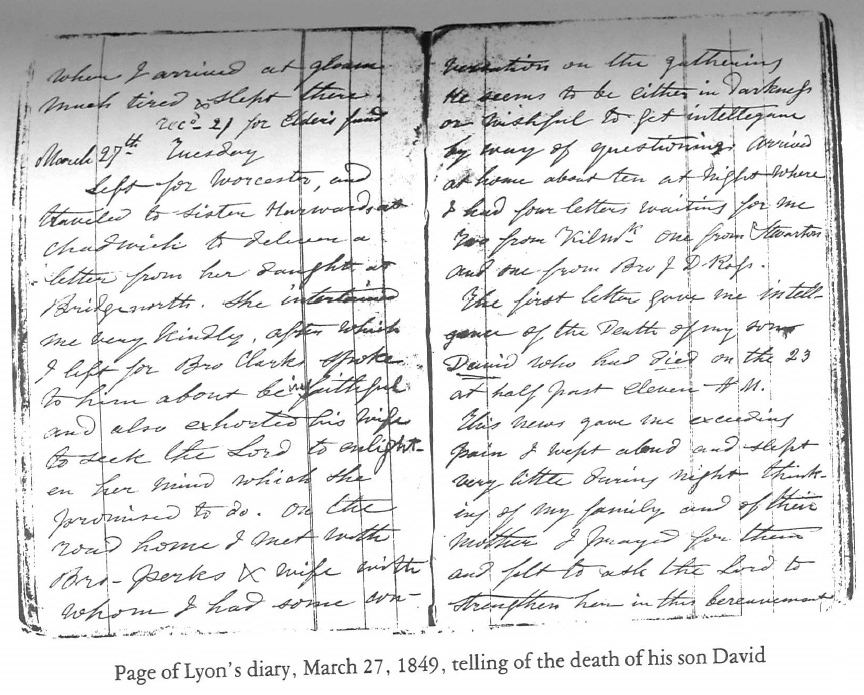 when I arrived at gloam
much tired & slept there.
recd 2/ for Elders fund
March 27th Tuesday
Left for Worcester, and
traveled to sister Harwards at
chadwich to deliver a
letter from her daught. at
Bridgenorth. She intertained
me very kindly, after which
I left for Bro Clarks spoke
to him about being faithful
and also exhorted his wife
to seek the Lord to enlight-
en her mind which she
promised to do. On the
road home I met with
Bro- Perks & wife with
whom I had some con-
versation on the gathering
He seems to be either in darkness
or wishful to get intellegence
by way of questioning arrived
at home about ten at night where
I had four letters waiting for me
Two from Kilmk. one from Stwarton
and one from Bro J D Ross.
The first letter gave me intell-
gence of the Death of my son
David who had died on the 23
at half past eleven A M.
This news gave me exceeding
pain I wept aloud and slept
very little during night think-
ing of my family and of their
mother I prayed for them
and felt to ask the Lord to
strengthen her in this bereavement
Page of Lyon's diary, March 27, 1849, telling of the death of his son David